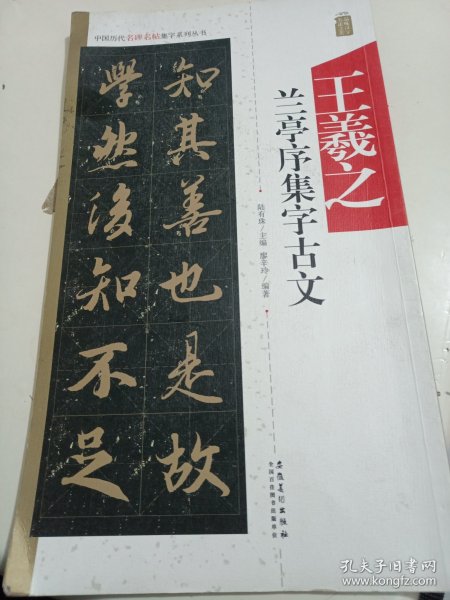 中国历代名碑名帖集字系列丛书
王羲之
兰亭序集字古文
陆有珠/主编 廖幸玲/编著
知其善也是故
學然後知不足
安徽美术出版社
全国百佳图书出版单位
孔夫子旧书网
www.kongfz.com